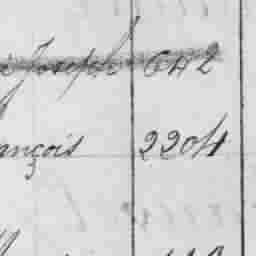 Joseph 642
ançois 2204